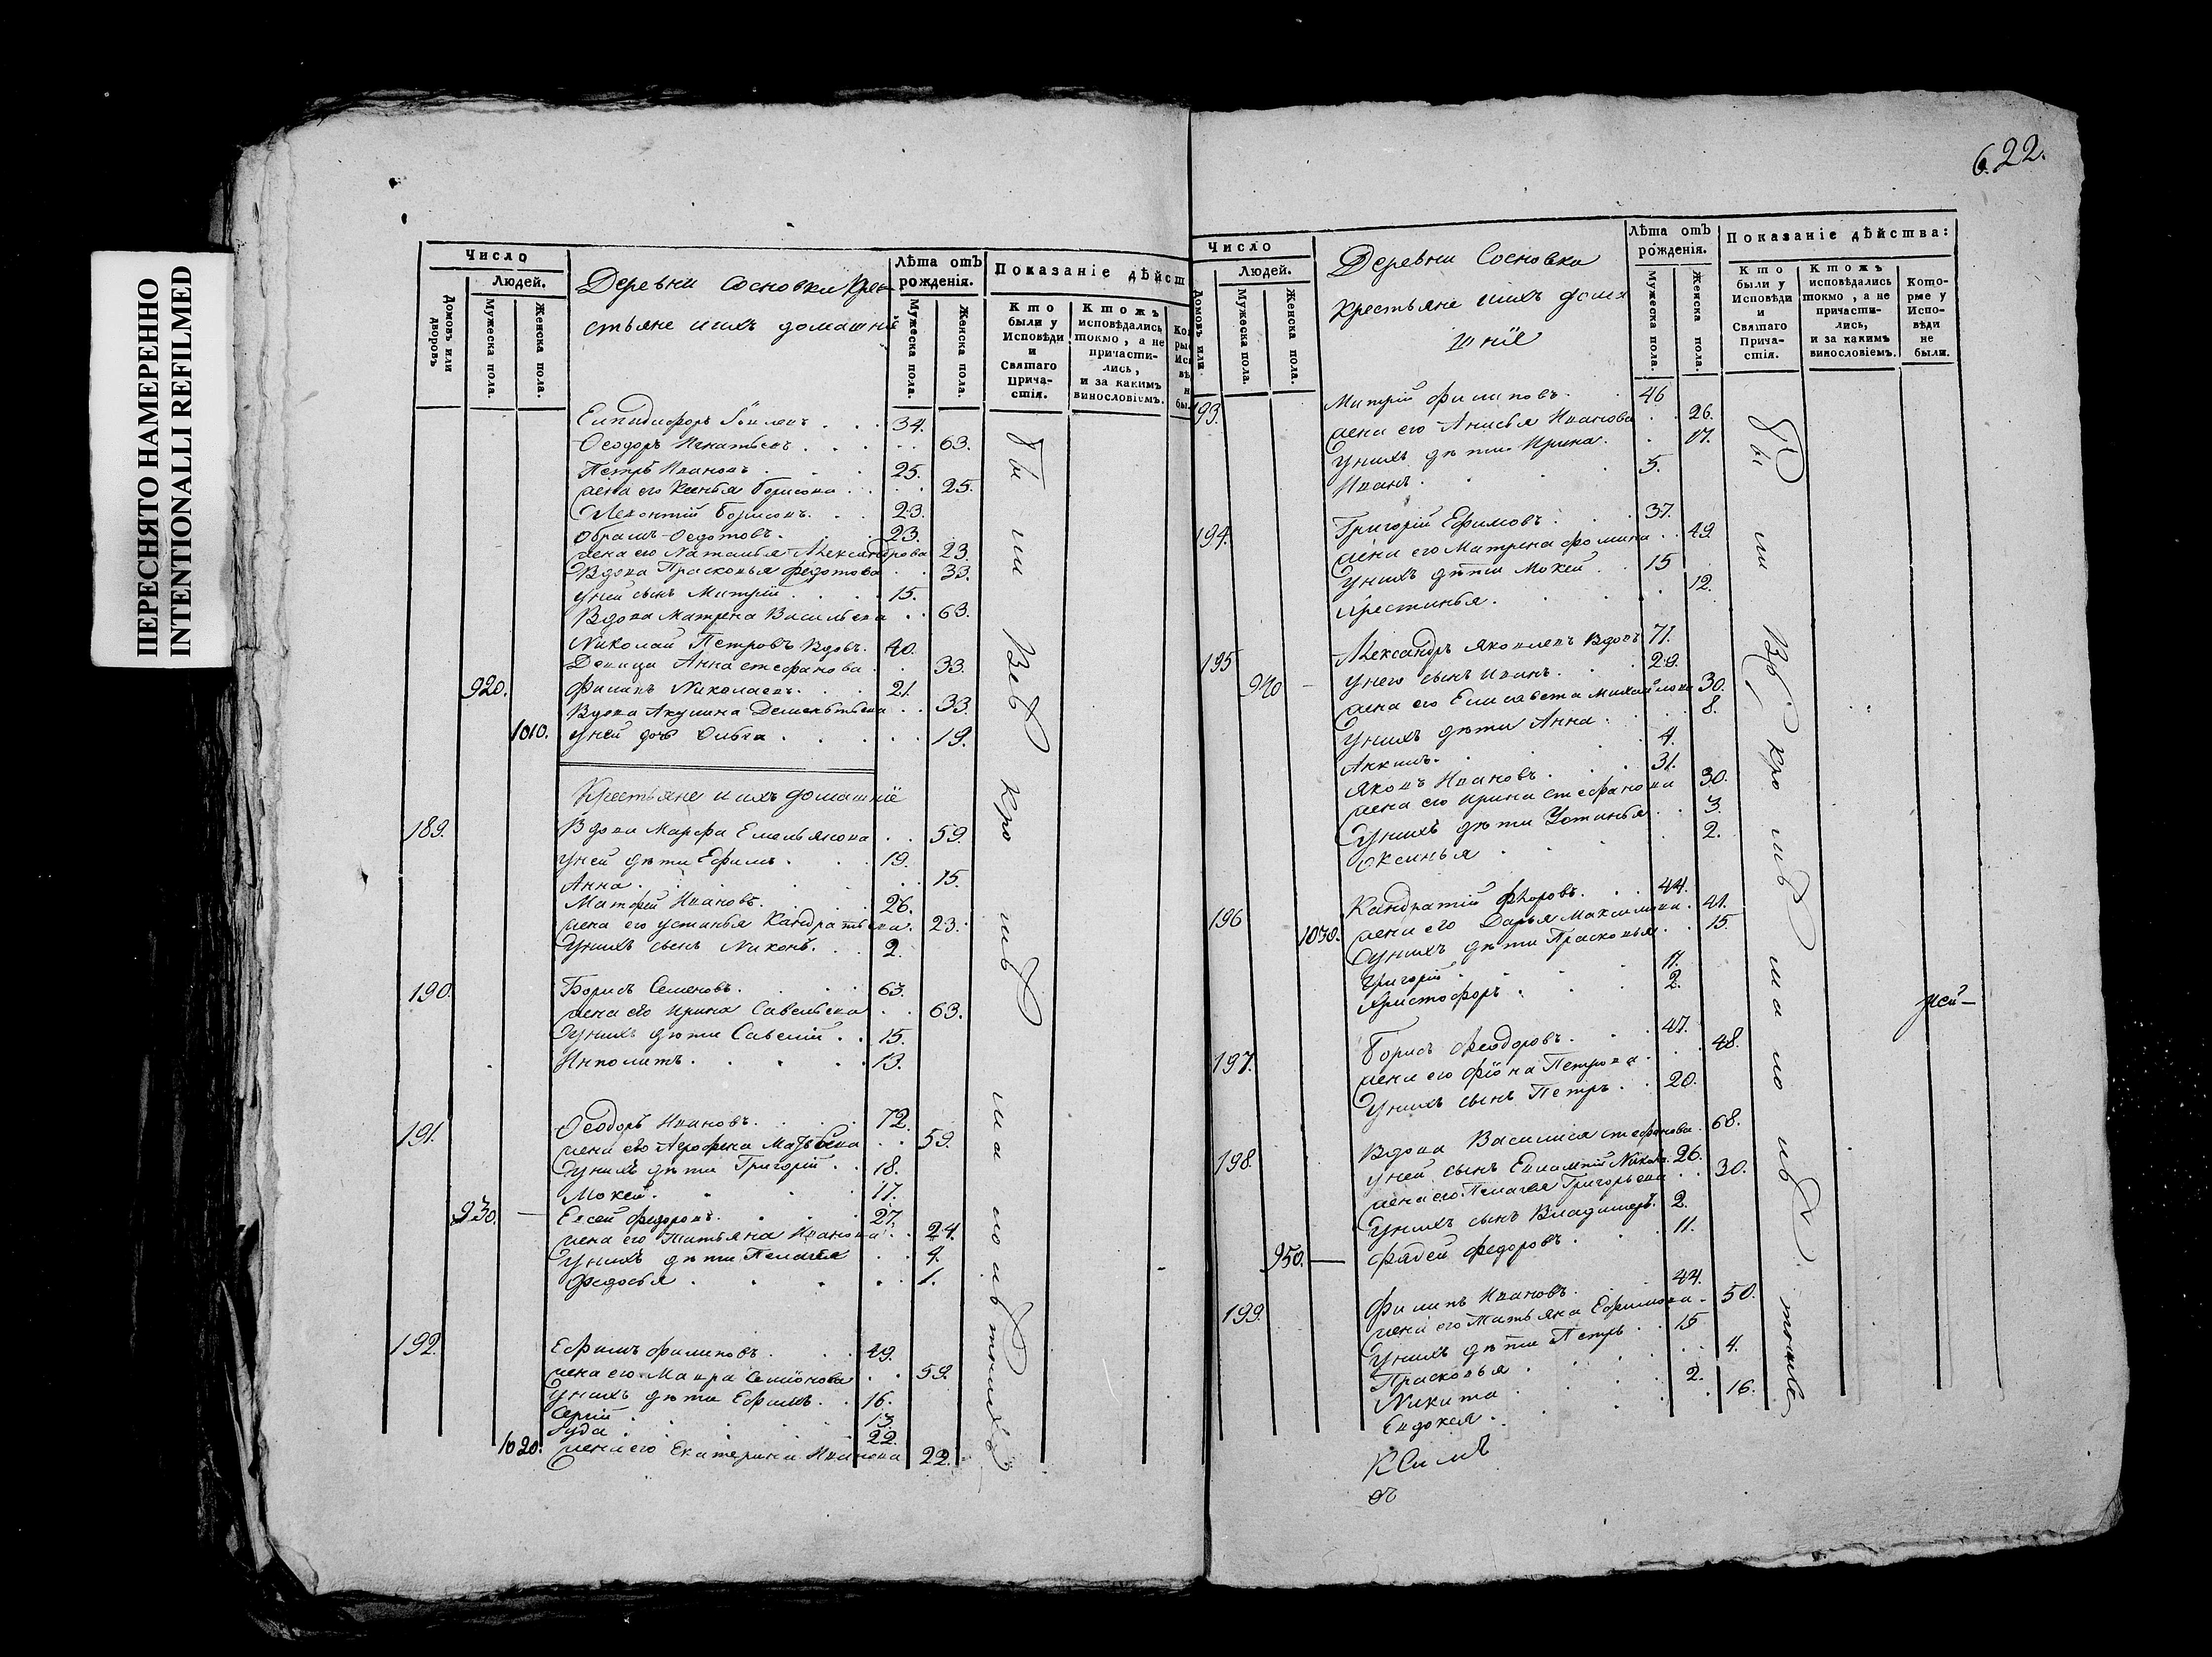 ПЕРЕСНЯТО НАМЕРЕННО
INTENTIONALLI REFILMED
Число
Людей.
Домовъ или дворовъ
Мужеска пола.
Женска пола.
Деревни Сосновки Кре-
стьяне и ихъ домашнiе
Лѣта отЪ рожденiя.
Мужеска пола.
Женска пола.
Показанiе дѣйст
Кто были у Исповѣди и Святаго Прича-стiя.
Ктожъ исповѣдались токмо, а не причасти-лись, и за какимъ винословiемъ.
34.
Ѳеодоръ Игнатьевъ 63.
Петръ Ивановъ 25.
жена его Ксенья Борисова 25.
Леонтiй Борисовъ. 23.
Обрамъ Ѳедотовъ. 23.
жена его Наталья Александрова 23
Вдова Прасковья Федотова 33.
уней сынъ Митрiй 15.
Вдова Матрена Васильева 63.
Николай Петровъ Вдовъ. 40.
Девица Анна стефанова 33.
920. Филипъ Николаевъ. 21.
Вдова Акулина Дементьева 33.
1010. уней дочь Ольга 19.
Крестьяне и ихъ домашнiе
189. Вдова Марфа Емельянова 59.
уней дѣти Ефимъ 19.
Анна 15.
Матфей Ивановъ. 26.
жена его устинья Кандратьева. 23.
унихъ сынъ Никонъ. 2.
190. Борисъ Семеновъ. 63.
жена его Ирина Савельева 63.
унихъ дѣти Савелiй 15.
Иполитъ 13.
191. Ѳеодоръ Ивановъ. 72.
жена его Агрофена Матвѣева 59.
унихъ дѣти Григорiй 18.
Мокей. 17.
930. Евсей Федоровъ. 27.
жена его Татьяна Иванова 24.
унихъ дѣти Пелагея 4.
Федосья 1.
192. Ефимъ филиповъ 49.
жена его Мавра Семiонова 59.
унихъ дѣти Ефимъ 16.
Сергiй 13.
Iуда 22.
1020. жена его Екатерина Иванова 22.
бы ли Всѣ кро мѣ ма лолѣтнихъ
622.
Число
Людей.
Домовъ или
Мужеска пола.
Женска пола.
Деревни Сосновки
Крестьяне ихъ домa
шнiе
Лѣта отъ рожденiя.
Мужеска пола.
Женска пола.
Показанiе дѣйства:
Кто были у Исповѣди и Святаго Прича-стiя.
Ктожъ исповѣдались токмо, а не причасти-лись, и за какимъ винословiемъ.
Кото-рые у Испо-вѣди не были.
193. Митрiй филиповъ. 46
жена его Анисья Иванова 26.
унихъ дѣти Ирина 17.
Иванъ. 5.
194. Григорiй Ефимовъ. 37.
жена его Матрена фомина 49
унихъ дѣти Мокей 15
Крестинья. 12.
195 Александръ Яковлевъ Вдовъ 71.
940 унего сынъ Иванъ. 29.
жена его Елисавета Михайлова 30.
унихъ дѣти Анна 8.
Аникитъ. 4.
Яковъ Ивановъ 31.
жена его Ирина стефанова 30.
унихъ дѣти Устинья 3.
Оксинья 2.
196 Кандратiй фларовъ. 44.
1030. жена его Дарья Максимова. 41.
унихъ дѣти Прасковья 15.
Григорiй 11.
Христофоръ 2.
197. Борисъ Феодоровъ. 47.
жена его Фiона Петрова 48.
унихъ сынъ Петръ 20.
198. Вдова Василиса стефанова 68.
уней сынъ Евлампiй 26.
жена его Пелагея Григорьева 30.
унихъ сынъ Владимеръ. 2.
950. Фадей Федоровъ 11.
199. Филипъ Ивановъ. 44.
жена его Татьяна Ефимова 50.
унихъ дѣти Петръ 15
Прасковья 4.
Никита 2.
Евдокея. 16.
бы ли Всѣ кро мѣ ма ло лѣ тнихъ